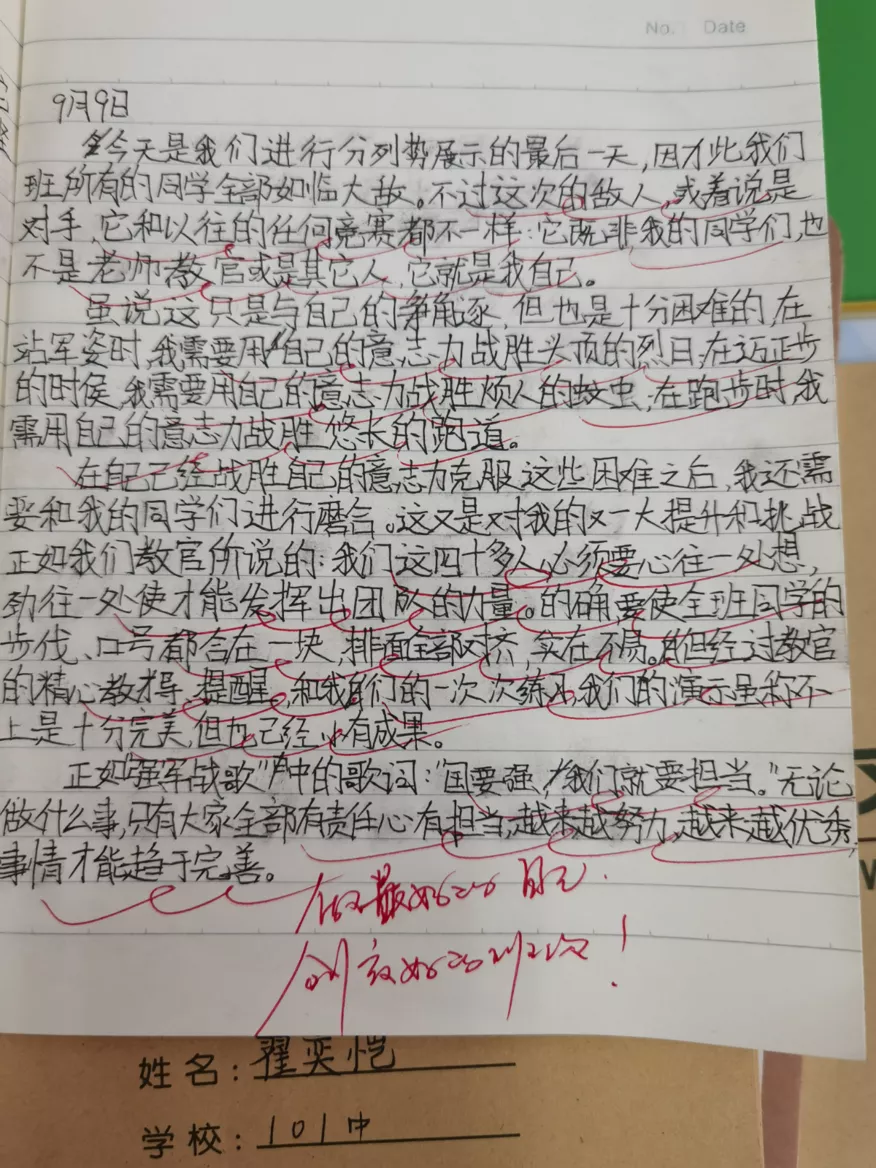 No. Date
9月9日
今天是我们进行分列势展示的最后一天，因才此我们
班所有的同学全部如临大敌。不过这次的敌人，或着说是
对手，它和以往的任何竞赛都不一样：它既非我的同学们，也
不是老师教官或是其它人，它就是我自己。
虽说这只是与自己的争角逐，但也是十分困难的，在
站军姿时，我需要用自己的意志力战胜头顶的烈日，在迈正步
的时侯，我需要用自己的意志力战胜烦人的蚊虫，在跑步时，我
需用自己的意志力战胜悠长的跑道。
在自己已经战胜自己的意志力克服这些困难之后，我还需
要和我的同学们进行磨合。这又是对我的又一大提升和挑战
正如我们教官所说的：我们这四十多人必须要心往一处想，
劲往一处使才能发挥出团队的力量。的确要使全班同学的
步伐、口号都合在一块，排面全部对挤，实在不易。但经过教官
的精心教导，提醒，和我们的一次次练习，我们的演示虽称不
上是十分完美，但也已经小有成果。
正如"强军战歌"中的歌词："国要强，我们就要担当。"无论
做什么事，只有大家全部有责任心有担当，越来越努力，越来越优秀，
事情才能趋于完善。
做最好的自己.
创最好的班级！
姓名：翟奕恺
学校：101中